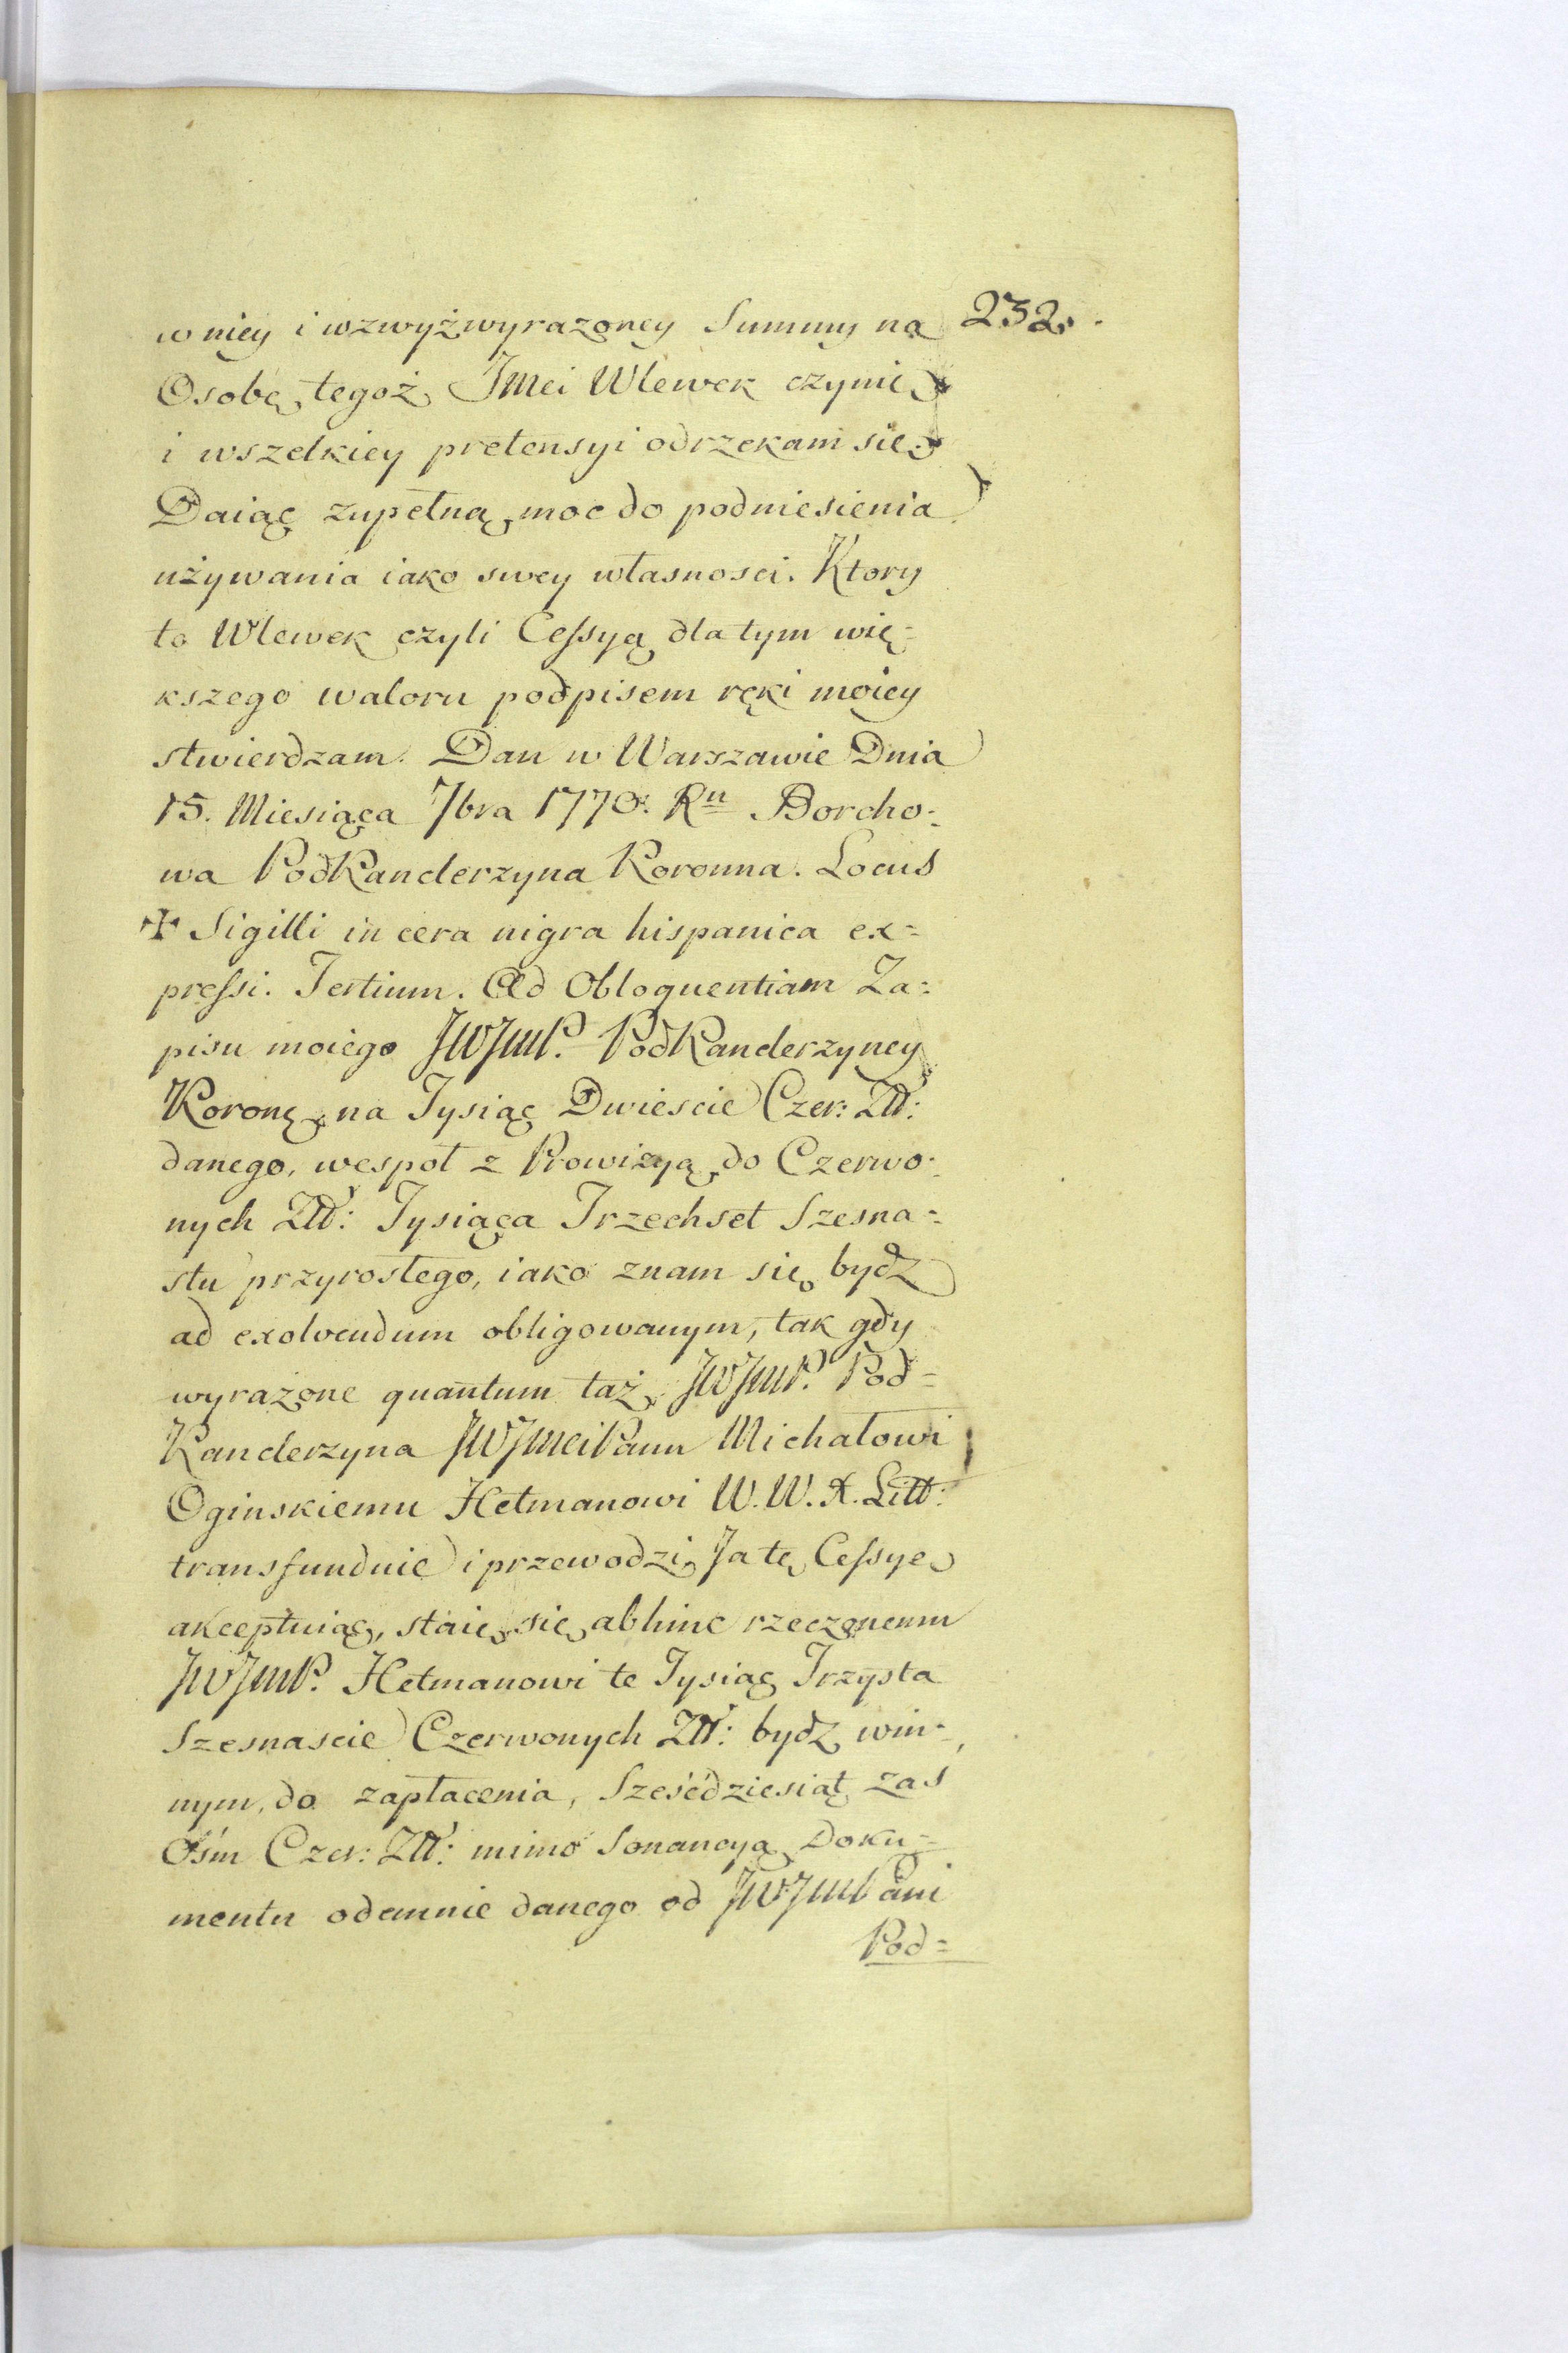 w niey i wzwyż wyrazoney Summy na 232.
Osobę tegoż JMci Wlewek czynię
i wszelkiey pretensyi odrzekam się
Daiąc zupełną moc do podniesienia
używania iako swey własnosci. Ktory
to Wlewek czyli Cessyą dla tym wię=
kszego waloru podpisem ręki moiey
stwierdzam. Dan w Warszawie Dnia
15. Miesiąca 7bra 1770. Ru Borcho=
wa PodKanclerzyna Koronna. Locus
✠ Sigilli in cera nigra hispanica ex=
pressi. Tertium. Ad Obloquentiam Za=
pisu moiego JWJmP. PodKanclerzyney
Koronę. na Tysiąc Dwiescie Czer: Złł:
danego, wespoł z Prowizyą do Czerwo=
nych Złł: Tysiąca Trzechset Szesna=
stu przyrosłego, iako znam się bydz
ad exolvendum obligowanym, tak gdy
wyrażone quantum taż JWJmP. Pod=
Kanclerzyna JWJmciPanu Michałowi
Oginskiemu Hetmanowi W. W. X. Litt:
transfunduie i przewodzi, Ja tę Cessye
akceptuiąc, staię się abhinc rzeczonemu
JWJmP. Hetmanowi te Tysiąc Trzysta
Szesnascie Czerwonych Złł: bydz win=
nym, do zapłacenia, Sześćdziesiąt zas
Ośm Czer: Złł: mimo Sonancyą Doku=
mentu odemnie danego od JWJmPani
Pod=